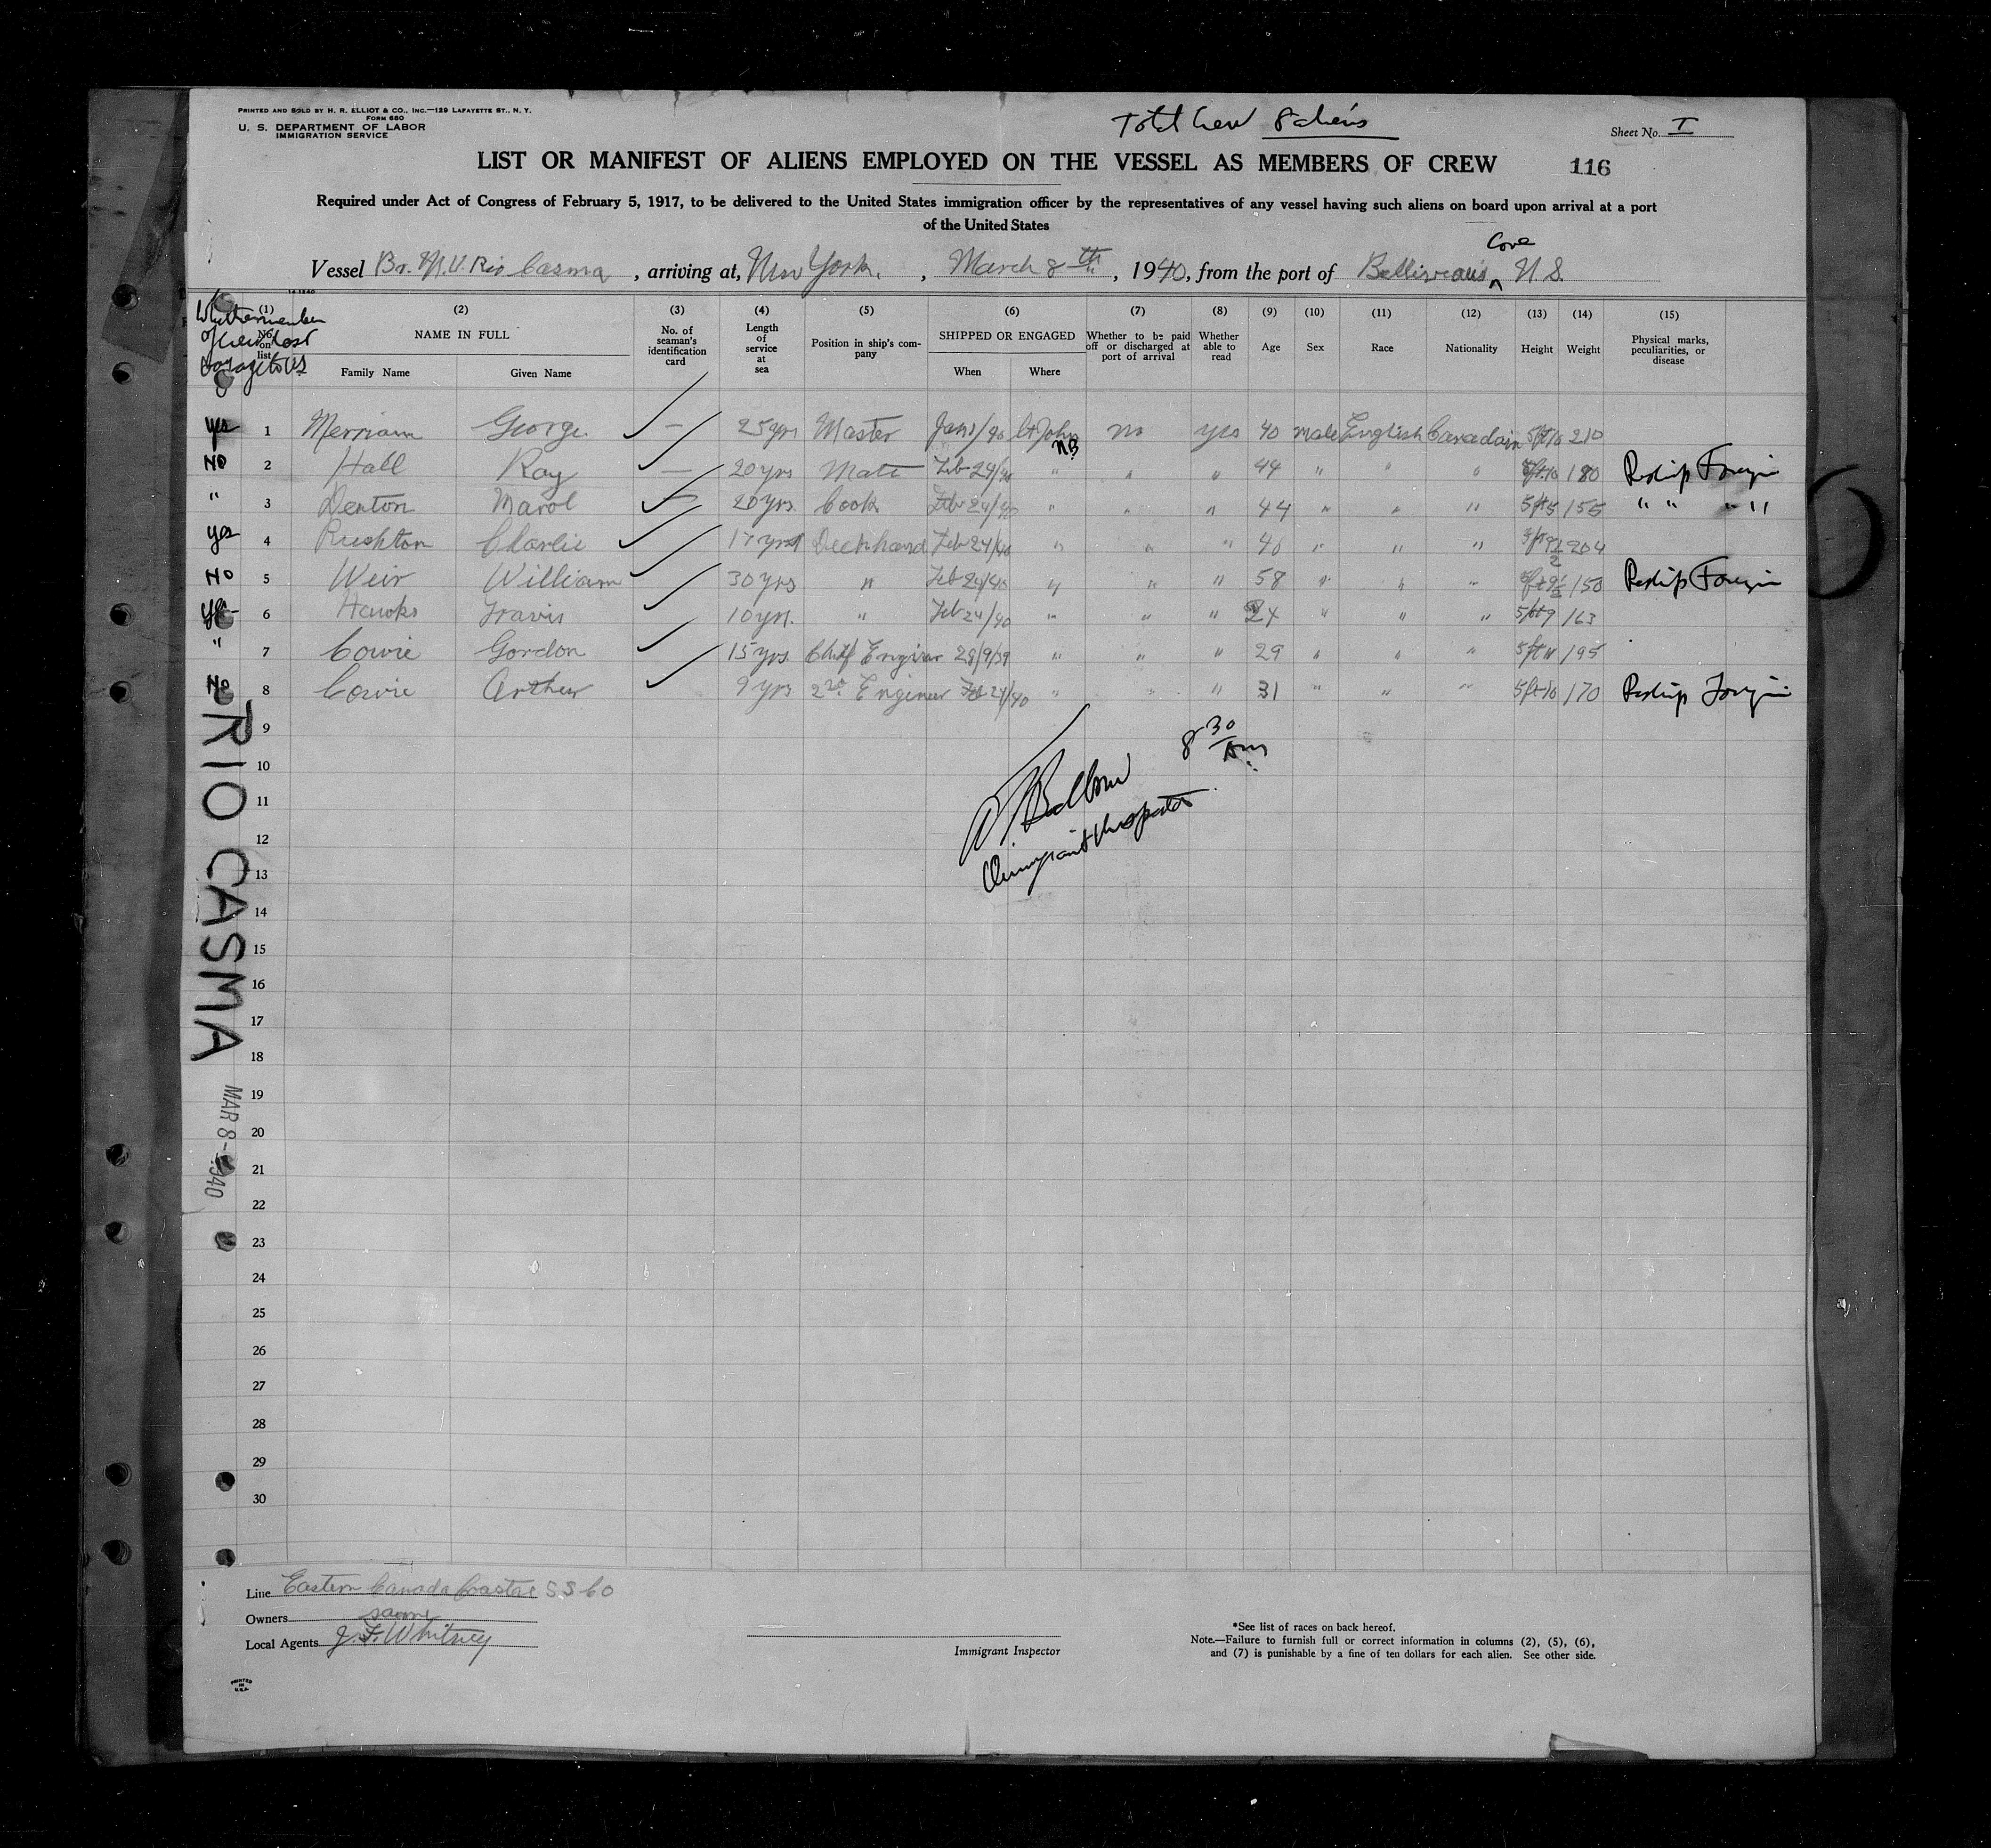 PRINTED AND SOLD BY H. R. ELLIOT & CO., INC.—129 LAFAYETTE ST., N. Y.
FORM 680
U. S. DEPARTMENT OF LABOR
IMMIGRATION SERVICE
Total Crew 8 aliens
Sheet No. I
LIST OR MANIFEST OF ALIENS EMPLOYED ON THE VESSEL AS MEMBERS OF CREW
116
Required under Act of Congress of February 5, 1917, to be delivered to the United States immigration officer by the representatives of any vessel having such aliens on board upon arrival at a port
of the United States
Cove
Vessel Br. M.V. Rio Casma, arriving at, New York, March 8th, 1940, from the port of Belliveaus N.S.
Whether member of crew last voyage to US
(1) No. on list
(2) NAME IN FULL Family Name Given Name
(3) No. of seaman's identification card
(4) Length of service at sea
(5) Position in ship's company
(6) SHIPPED OR ENGAGED When Where
(7) Whether to be paid off or discharged at port of arrival
(8) Whether able to read
(9) Age
(10) Sex
(11) Race
(12) Nationality
(13) Height
(14) Weight
(15) Physical marks, peculiarities, or disease
yes 1 Merriam George — 25 yrs Master Jan 1/40 St John NB no yes 40 male English Canadain 5ft 10 210
No 2 Hall Ray — 20 yrs Mate Feb 24/40 " " " 44 " " " 5ft 10 180 Reship Foreign
" 3 Denton Marol — 20 yrs. Cook Feb 24/40 " " " 44 " " " 5ft 5 155 " " " "
yes 4 Rushton Charlie 17 yrs Deckhand Feb 24/40 " " " 46 " " " 5ft 9½ 204
No 5 Weir William 30 yrs " Feb 24/40 " " " 58 " " " 5ft 9½ 150 Reship Foreign
yes 6 Hawks Travis 10 yrs. " Feb 24/40 " " " 24 " " " 5ft 9 163
" 7 Cowie Gordon 15 yrs Chief Enginer 28/9/39 " " " 29 " " " 5ft 11 195
No 8 Cowie Arthur 9 yrs 2nd Engineer Feb 24/40 " " " 31 " " " 5ft 10 170 Reship Foreign
9
10
11
12
13
14
15
16
17
18
19
20
21
22
23
24
25
26
27
28
29
30
8 30 Am
Immigrant Inspector
RIO CASMA
MAR 8 - 1940
Line Eastern Canada Coastal S S Co
Owners same
Local Agents J. F. Whitney
Immigrant Inspector
*See list of races on back hereof.
Note.—Failure to furnish full or correct information in columns (2), (5), (6),
and (7) is punishable by a fine of ten dollars for each alien. See other side.
PRINTED
IN
U.S.A.